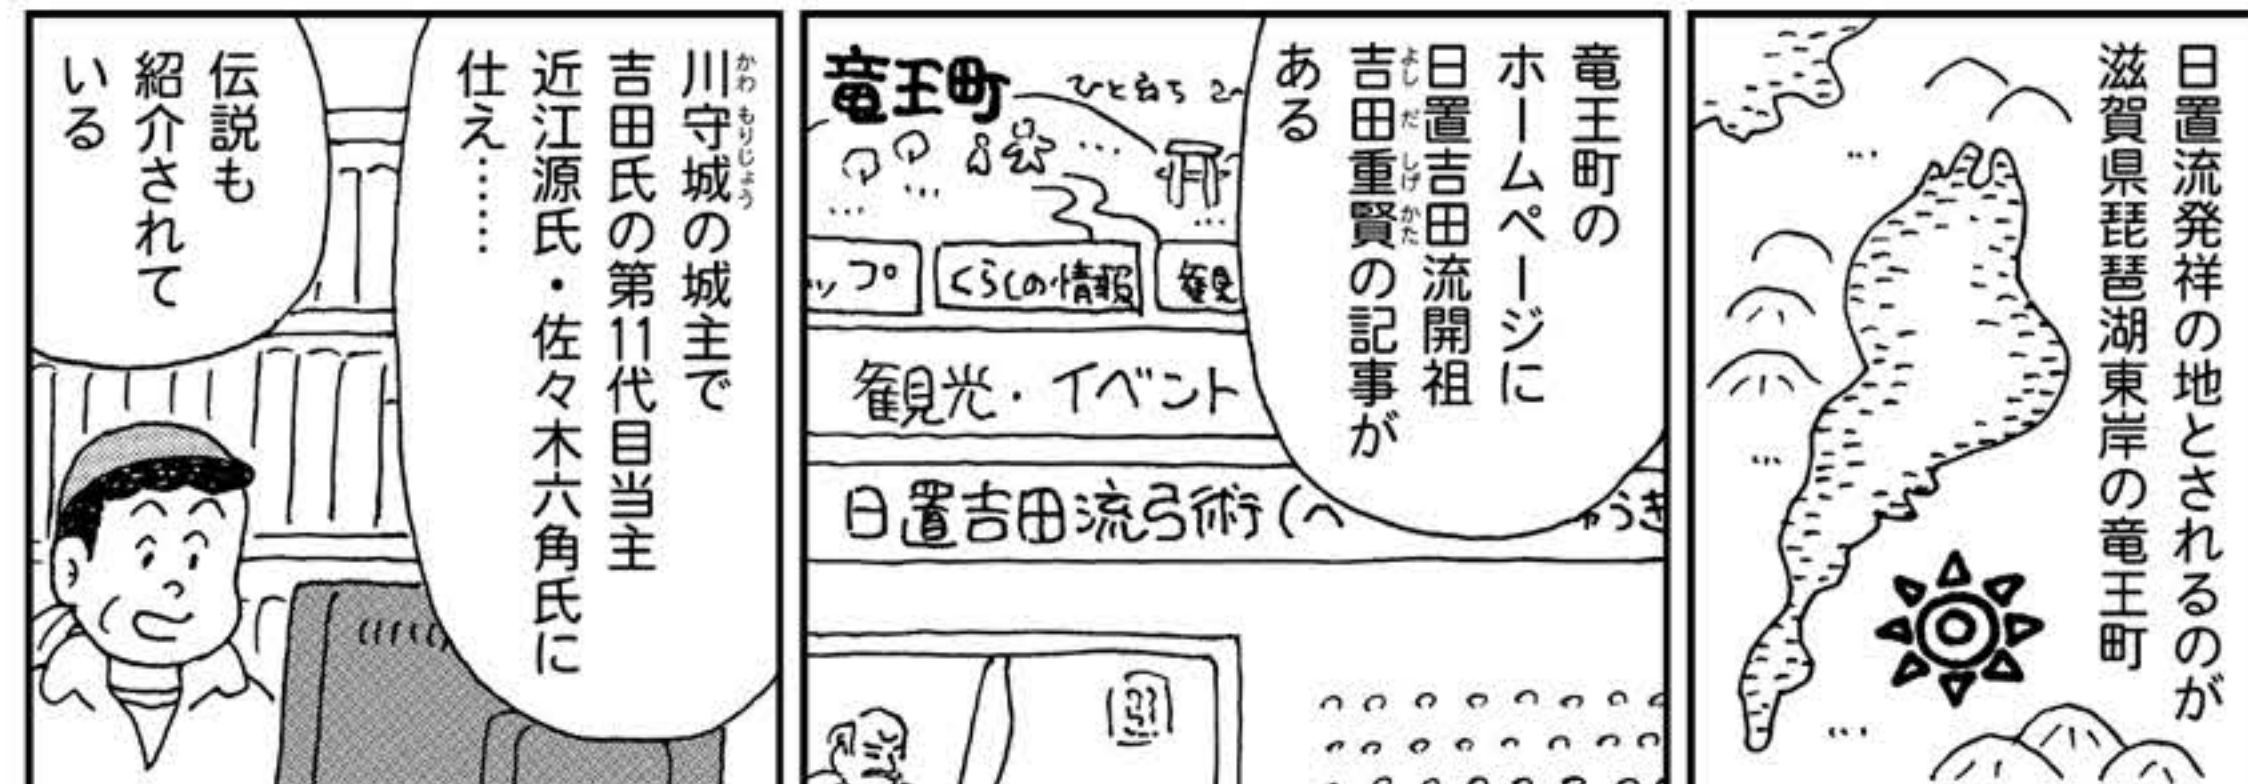 日置流発祥の地とされるのが
滋賀県琵琶湖東岸の竜王町
竜王町の
ホームページに
日置吉田流開祖
吉田重賢の記事が
よしだしげかた
ある
竜王町
ひと
ップ
くらしの情報
観
観光・イベント
日置吉田流弓術(へ
ゅうき
川守城の城主で
かわもりじょう
吉田氏の第11代目当主
近江源氏・佐々木六角氏に
仕え……
伝説も
紹介されて
いる